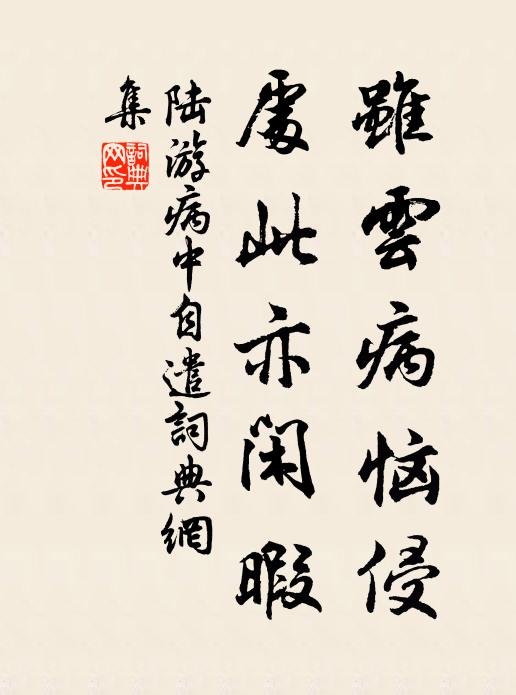 雖雲病恼侵
處此亦閑暇
陆游病中自遣詞典網
集
詞典網印